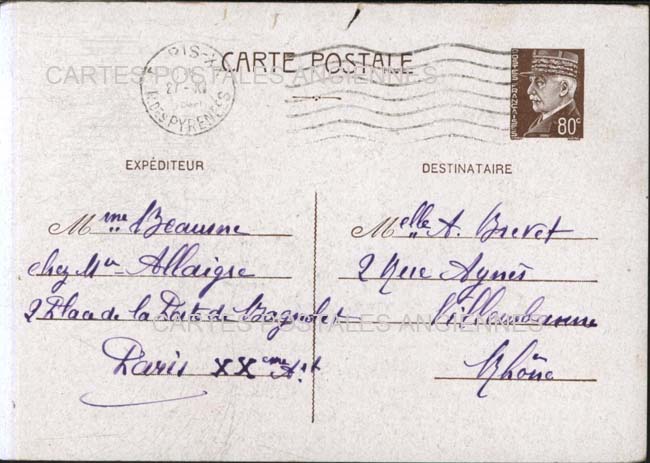 CARTE POSTALE
CARTES POSTALES ANCIENNES
PARIS-XX
27-XI
R. DES PYRENEES
POSTES FRANÇAISES
80c
EXPÉDITEUR
Mme Beaune
chez Mr Allaigre
2 Place de la Porte de Bagnolet
Paris XXème Art
DESTINATAIRE
Melle A. Brevet
2 Rue Agnès
Villeurbanne
Rhône
CARTES POSTALES ANCIENNES